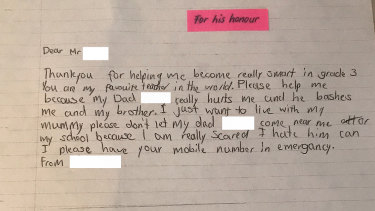 For his honour
Dear Mr
Thankyou for helping me become really smart in grade 3
You are my favourite teacher in the world. Please help me
because my Dad really hurts me and he bashes
me and my brother. I just want to live with my
mummy please don't let my dad come near me or
my school because I am really scared I hate him can
I please have your mobile number in emergancy.
From